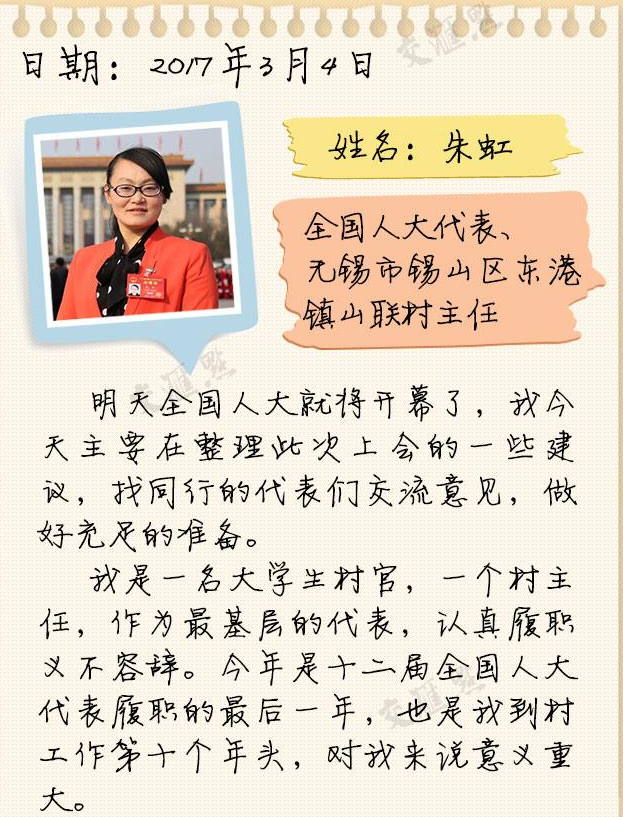 日期：2017年3月4日
姓名：朱虹
全国人大代表、
无锡市锡山区东港
镇山联村主任
明天全国人大就将开幕了，我今
天主要在整理此次上会的一些建
议，找同行的代表们交流意见，做
好充足的准备。
我是一名大学生村官，一个村主
任，作为最基层的代表，认真履职
义不容辞。今年是十二届全国人大
代表履职的最后一年，也是我到村
工作第十个年头，对我来说意义重
大。
交汇点
交汇点
交汇点